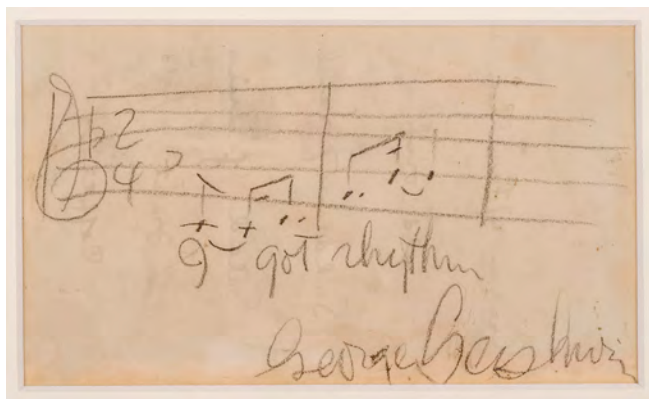 2
4
I got rhythm
George Gershwin